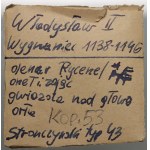 Władysław II
Wygnaniec 1138-1146
denar Rycerz/
i zając
gwiazda nad głową
orła Kop.53
Stronczyński typ 43